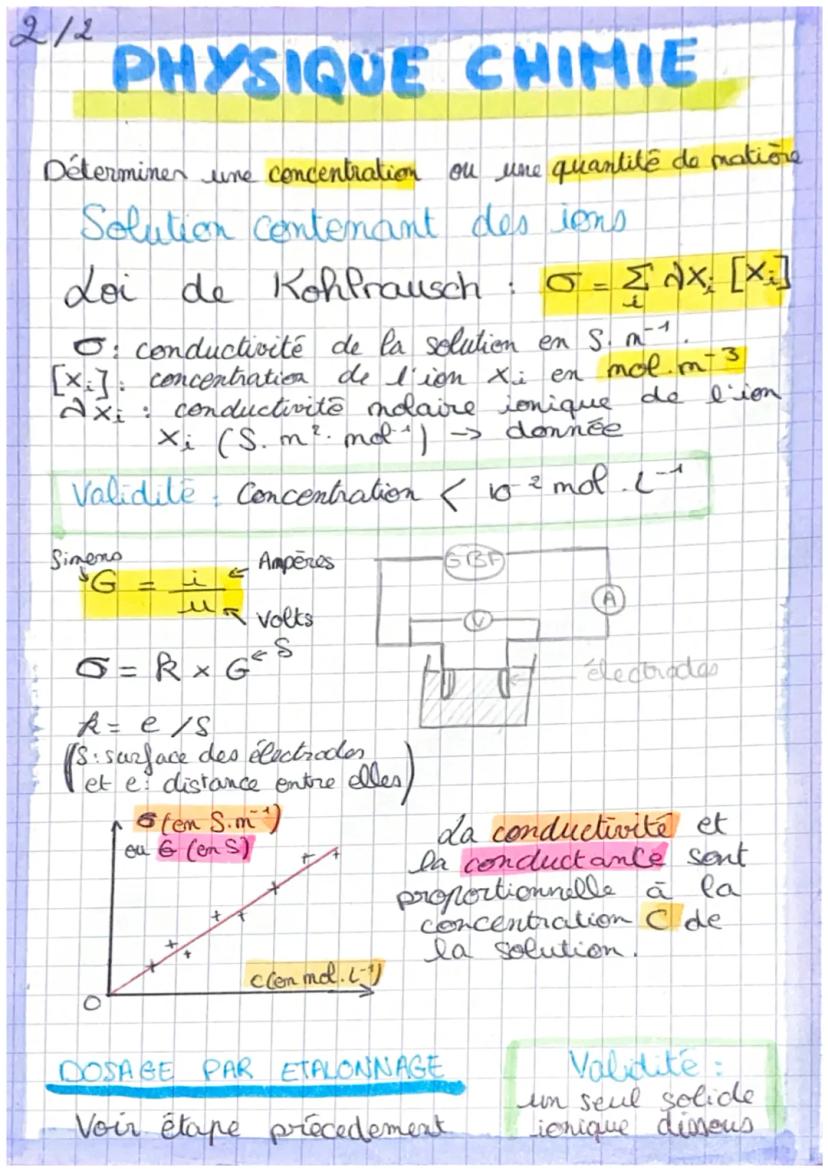 2/2
PHYSIQUE CHIMIE
Déterminer une concentration ou une quantité de matière
Solution contenant des ions
Loi de Kohlrausch : σ = Σ_i λX_i [X_i]
σ : conductivité de la solution en S. m⁻¹.
[X_i] : concentration de l'ion X_i en mol. m⁻³
λX_i : conductivité molaire ionique de l'ion
X_i (S. m². mol⁻¹) → donnée
Validité : Concentration < 10⁻² mol. L⁻¹
Simens
G = i / u
Ampères
Volts
σ = k × G ← S
k = e / S
(S : surface des électrodes
et e : distance entre elles)
GBF
A
V
électrodes
σ (en S.m⁻¹)
ou G (en S)
C (en mol. L⁻¹)
O
La conductivité et
la conductance sont
proportionnelle à la
concentration C de
la solution.
DOSAGE PAR ETALONNAGE
Voir étape précedement
Validité :
un seul solide
ionique dissous